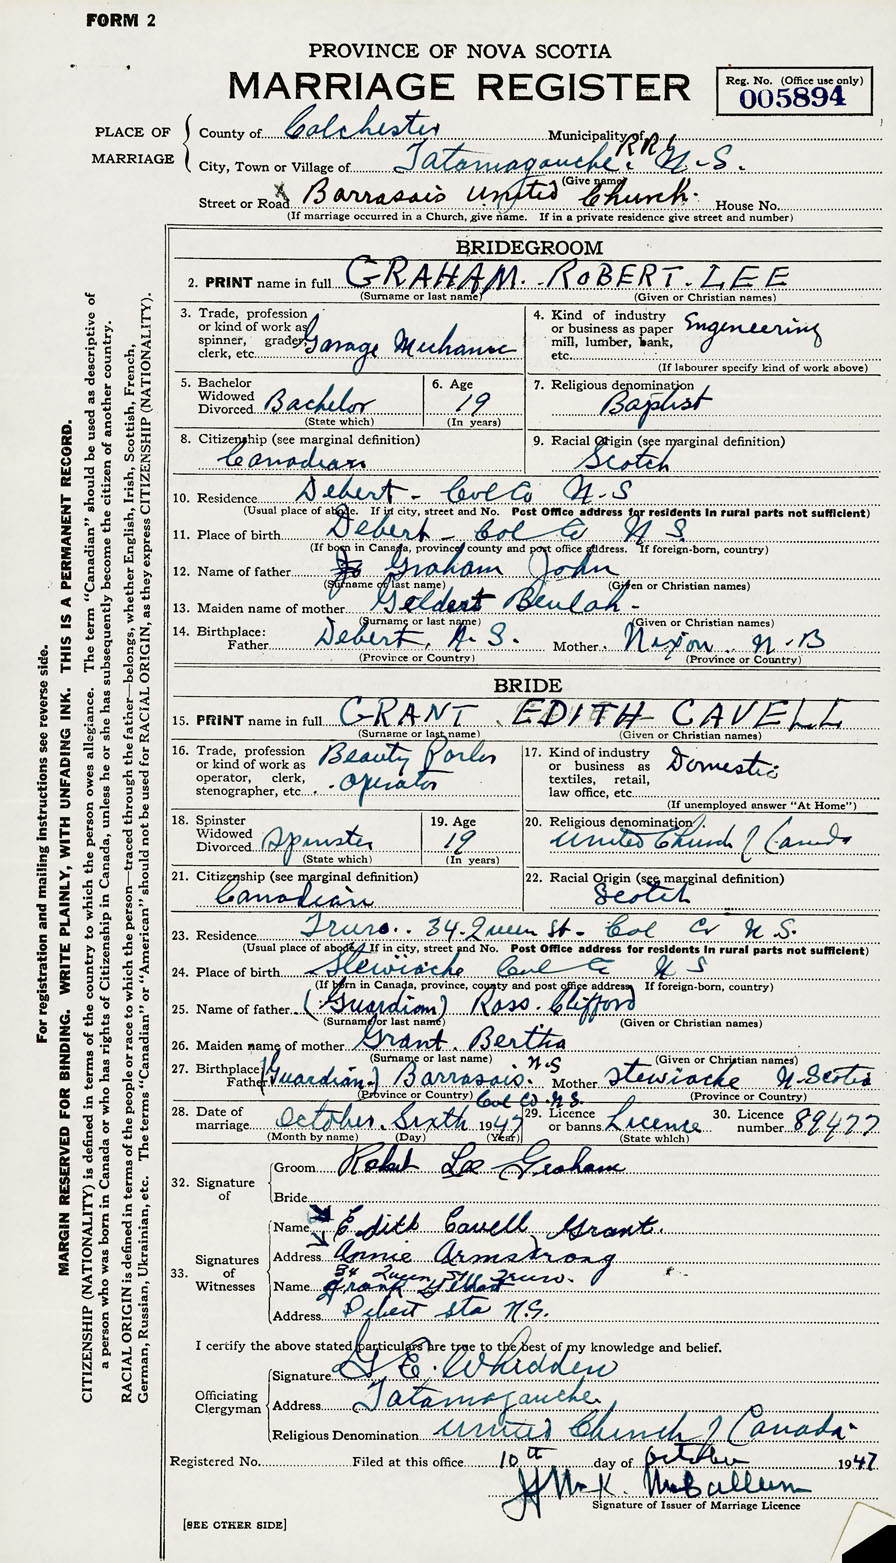 FORM 2
PROVINCE OF NOVA SCOTIA
MARRIAGE REGISTER
Reg. No. (Office use only)
005894
PLACE OF MARRIAGE
County of Colchester Municipality of
City, Town or Village of Tatamagouche. RR1 N-S.
(Give name)
Street or Road Barrasois United Church. House No.
(If marriage occurred in a Church, give name. If in a private residence give street and number)
BRIDEGROOM
2. PRINT name in full GRAHAM. ROBERT. LEE
(Surname or last name) (Given or Christian names)
3. Trade, profession or kind of work as spinner, grader, clerk, etc. Garage Mechanic
4. Kind of industry or business as paper mill, lumber, bank, etc. Engeneering
(If labourer specify kind of work above)
5. Bachelor Widowed Divorced Bachelor
(State which)
6. Age 19
(In years)
7. Religious denomination Baptist
8. Citizenship (see marginal definition)
Canadian
9. Racial Origin (see marginal definition)
Scotch
10. Residence Debert - Col Co N-S
(Usual place of abode. If in city, street and No. Post Office address for residents in rural parts not sufficient)
11. Place of birth Debert - Col Co N S.
(If born in Canada, province, county and post office address. If foreign-born, country)
12. Name of father Graham John
(Surname or last name) (Given or Christian names)
13. Maiden name of mother Geldert Beulah -
(Surname or last name) (Given or Christian names)
14. Birthplace: Father Debert, N.S. Mother Nixon. N-B
(Province or Country) (Province or Country)
BRIDE
15. PRINT name in full GRANT EDITH CAVELL
(Surname or last name) (Given or Christian names)
16. Trade, profession or kind of work as operator, clerk, stenographer, etc. Beauty Parlor operator
17. Kind of industry or business as textiles, retail, law office, etc. Domestic
(If unemployed answer "At Home")
18. Spinster Widowed Divorced Spinster
(State which)
19. Age 19
(In years)
20. Religious denomination
United Church of Canada
21. Citizenship (see marginal definition)
Canadian
22. Racial Origin (see marginal definition)
Scotch
23. Residence Truro.. 34 Queen St - Col Co N.S.
(Usual place of abode. If in city, street and No. Post Office address for residents in rural parts not sufficient)
24. Place of birth Stewiacke Col Co N S
(If born in Canada, province, county and post office address) If foreign-born, country)
25. Name of father (Guardian) Ross Clifford
(Surname or last name) (Given or Christian names)
26. Maiden name of mother Grant Bertha
(Surname or last name) (Given or Christian names)
27. Birthplace Father (Guardian) Barrasois. N-S Col Co N.S. Mother Stewiacke N-Scotia
(Province or Country) (Province or Country)
28. Date of marriage October Sixth 1947
(Month by name) (Day) (Year)
29. Licence or banns Licence
(State which)
30. Licence number 89477
32. Signature of
Groom Robert Lee Graham
Bride
33. Signatures of Witnesses
Name Edith Cavell Grant.
Address Annie Armstrong
34 Queen St Truro.
Name Frank
Address Debert Sta N.S.
I certify the above stated particulars are true to the best of my knowledge and belief.
Officiating Clergyman
Signature G E. Whidden
Address Tatamagouche
Religious Denomination United Church of Canada.
Registered No. Filed at this office 10th day of October 1947
McCallum
Signature of Issuer of Marriage Licence
[SEE OTHER SIDE]
For registration and mailing instructions see reverse side.
MARGIN RESERVED FOR BINDING. WRITE PLAINLY, WITH UNFADING INK. THIS IS A PERMANENT RECORD.
CITIZENSHIP (NATIONALITY) is defined in terms of the country to which the person owes allegiance. The term "Canadian" should be used as descriptive of
a person who was born in Canada or who has rights of Citizenship in Canada, unless he or she has subsequently become the citizen of another country.
RACIAL ORIGIN is defined in terms of the people or race to which the person—traced through the father—belongs, whether English, Irish, Scottish, French,
German, Russian, Ukrainian, etc. The terms "Canadian" or "American" should not be used for RACIAL ORIGIN, as they express CITIZENSHIP (NATIONALITY).